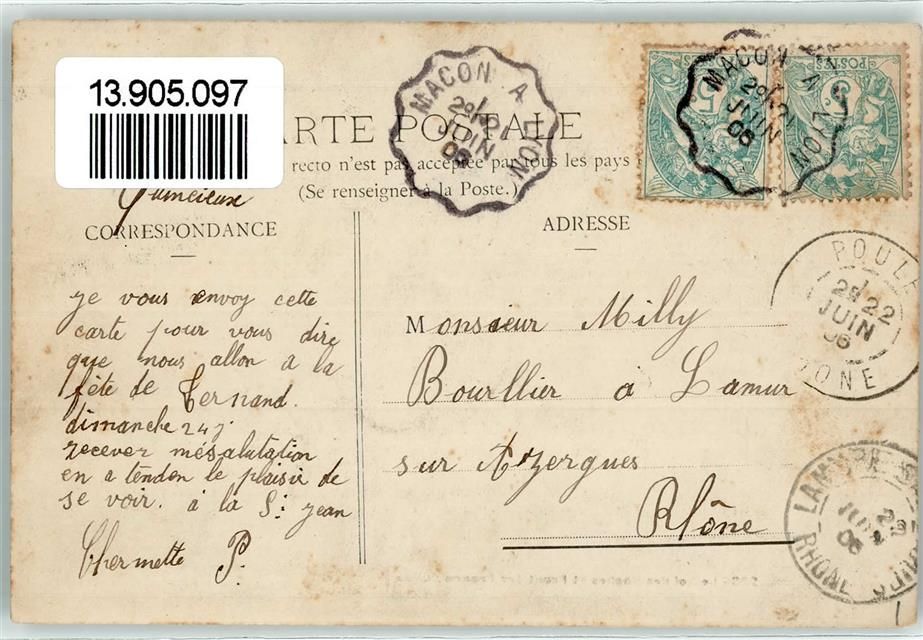 13.905.097
CARTE POSTALE
recto n'est pas acceptée par tous les pays
(Se renseigner à la Poste.)
CORRESPONDANCE
je vous envoy cette
carte pour vous dire
que nous allon a la
fête de Ternand.
dimanche 24 j
recever mésalutation
en a tenden le plaisir de
se voir. à la St jean
Chermette P.
ADRESSE
Monsieur Milly
Bourllier à Lamur
sur Azergues
Rhône
MACON A LYON
22
JUIN
06
POSTES
5
MACON A LYON
22
JUIN
06
POULE
22
JUIN
06
LAMURE S
22
06
RHONE
1